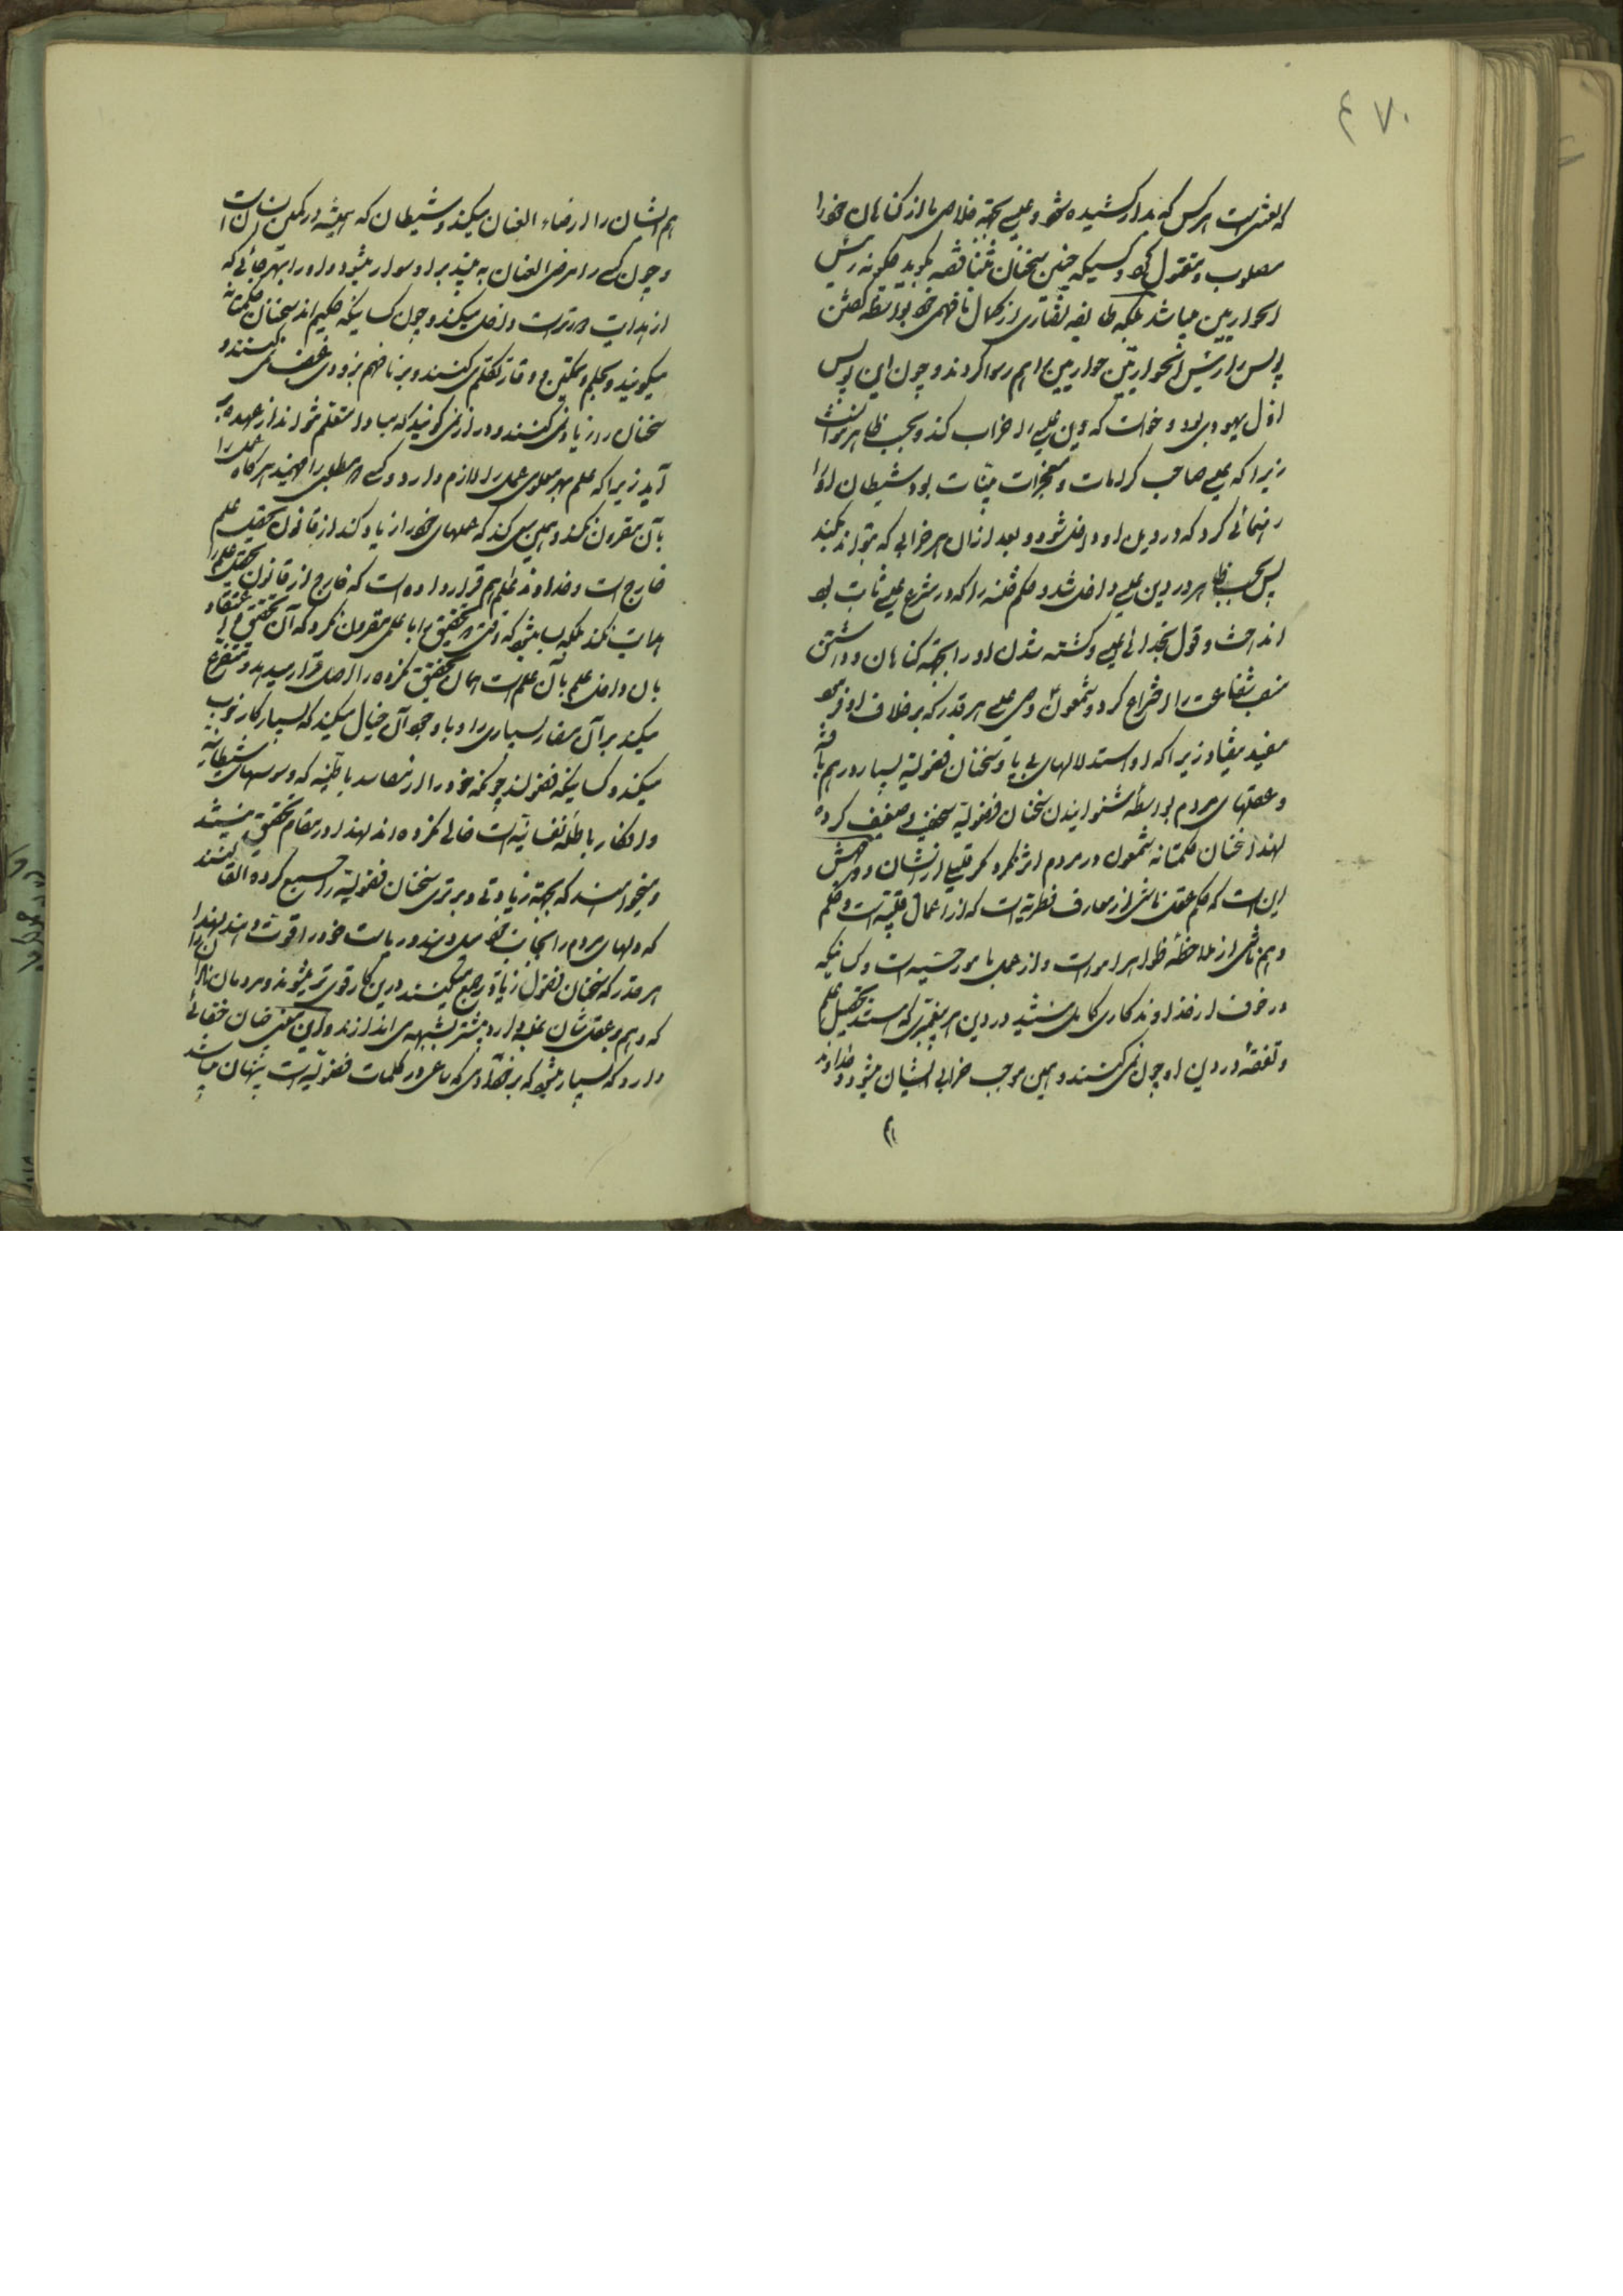 ۴۷۰
که لعنتی است هر کس که بدار کشیده شود و عیسی بجهة خلاصی ما از کناهان خود را
مصلوب و مقتول کرد و کسیکه چنین سخنان متناقضه بگوید چگونه رئیس
الحواریین میباشد بلکه طایفه نصاری از کمال نافهمی خود بواسطه گفتن
پولس را رئیس الحواریین حواریین را هم رسوا کردند و چون این پولس
اول یهودی بود و خواست که دین عیسی را خراب کند و بحسب ظاهر نتوانست
زیرا که عیسی صاحب کرامات و معجزات بینات بود شیطان او را
رهنمائی کرد که در دین او داخل شود و بعد از آن هر خرابی که بتواند بکند
پس بحسب ظاهر در دین عیسی داخل شد و حکم ختنه را که در شرع عیسی ثابت بود
انداخت و قول بخدائی عیسی و کشته شدن او را بجهة کناهان و داشتن
منصب شفاعت را اختراع کرد و شمعون وصی عیسی هر قدر که بر خلاف او فرمود
مفید نیفتاد زیرا که او استدلالهای بی پا و سخنان فضولیه بسیار در هم بافته
و عقلهای مردم بواسطه شنوانیدن سخنان فضولیه سخیف و ضعیف کرده
لهذا سخنان حکمتانه شمعون در مردم اثر نکرد مگر قلیلی از ایشان و وجهش
این است که حکم عقل ناشی از معارف فطریه است که از اعمال قلبیه است و حکم
وهم ناشی از ملاحظه ظواهر امور است و از عمل با مور حسیه است و کسانیکه
در خوف از خداوند کاری کامل نیستند در دین هر پیغمبری که هستند تحصیل علم
و تفقه در دین او چون نمی کنند و همین موجب خرابی ایشان میشود و خداوند
هم ایشان را ارخاء العنان میکند و شیطان که همیشه در کمین انسان است
و چون کسی را مرخی العنان به بیند بر او سوار میشود و او را بهر جائی که
از هدایت دورتر است داخل میکند و چون کسانیکه حکیم اند سخنان حکمتانه
میگویند و بحلم و تمکین و وقار تکلم می کنند و بر نافهم بزودی غضب نمی کنند و
سخنان را زیاد نمی کنند و دراز نمی گویند که مبادا متعلم نتواند از عهده بر
آید زیرا که علم بهر معلومی عمل را لازم دارد و کسی هر مطلبی را فهمید هر گاه عمل را
بآن مقرون نکند و همین سعی کند که علمهای خود را زیاد کند از قانون تحصیل علم
خارج است و خداوند عالم هم قرار داده است که خارج از قانون تحصیل علم را
هدایت نکند بلکه بسا میشود که وقت تحقیق را با علمی مقرون نکرد که آن تحقیق و اعتقاد
بان داخل علم بآن علم است همان تحقیق نکرده را اصل قرار میدهد و متفرع
میکند بر آن مضار بسیاری را و با وجود آن خیال میکند که بسیار کار خوب
میکند و کسانیکه فضولند چونکه خود را از مفاسد باطنیه که وسوسهای شیطانیه
و افکار باطله نفسانیه است خالی نکرده اند لهذا در مقام تحقیق نیستند
و میخواهند که بجهة زیادتی و برتری سخنان فضولیه را جمع کرده القا کنند
که دلهای مردم را بجانب خود میل دهند و ریاست خود را قوت دهند لهذا
هر قدر که سخنان فضول زیادتر جمع میکنند درین کار قوی تر میشوند و مردمان نادان را
که وهم بر عقلشان غلبه دارد بیشتر بشبهه می اندازند و این معنی چنان خفائی
دارد که بسیار میشود که بر خود آدمی که ساعی در کلمات فضولیه است پنهان میباشد